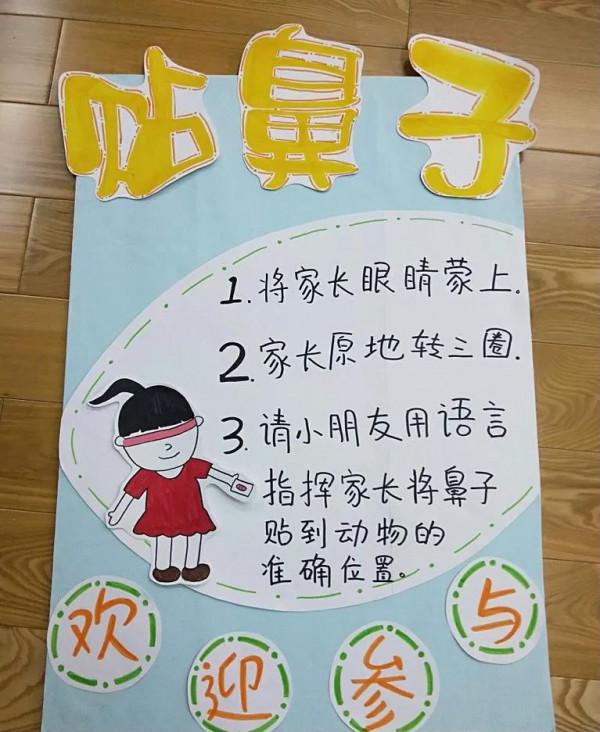 贴鼻子
1. 将家长眼睛蒙上.
2. 家长原地转三圈.
3. 请小朋友用语言
指挥家长将鼻子
贴到动物的
准确位置。
欢迎参与